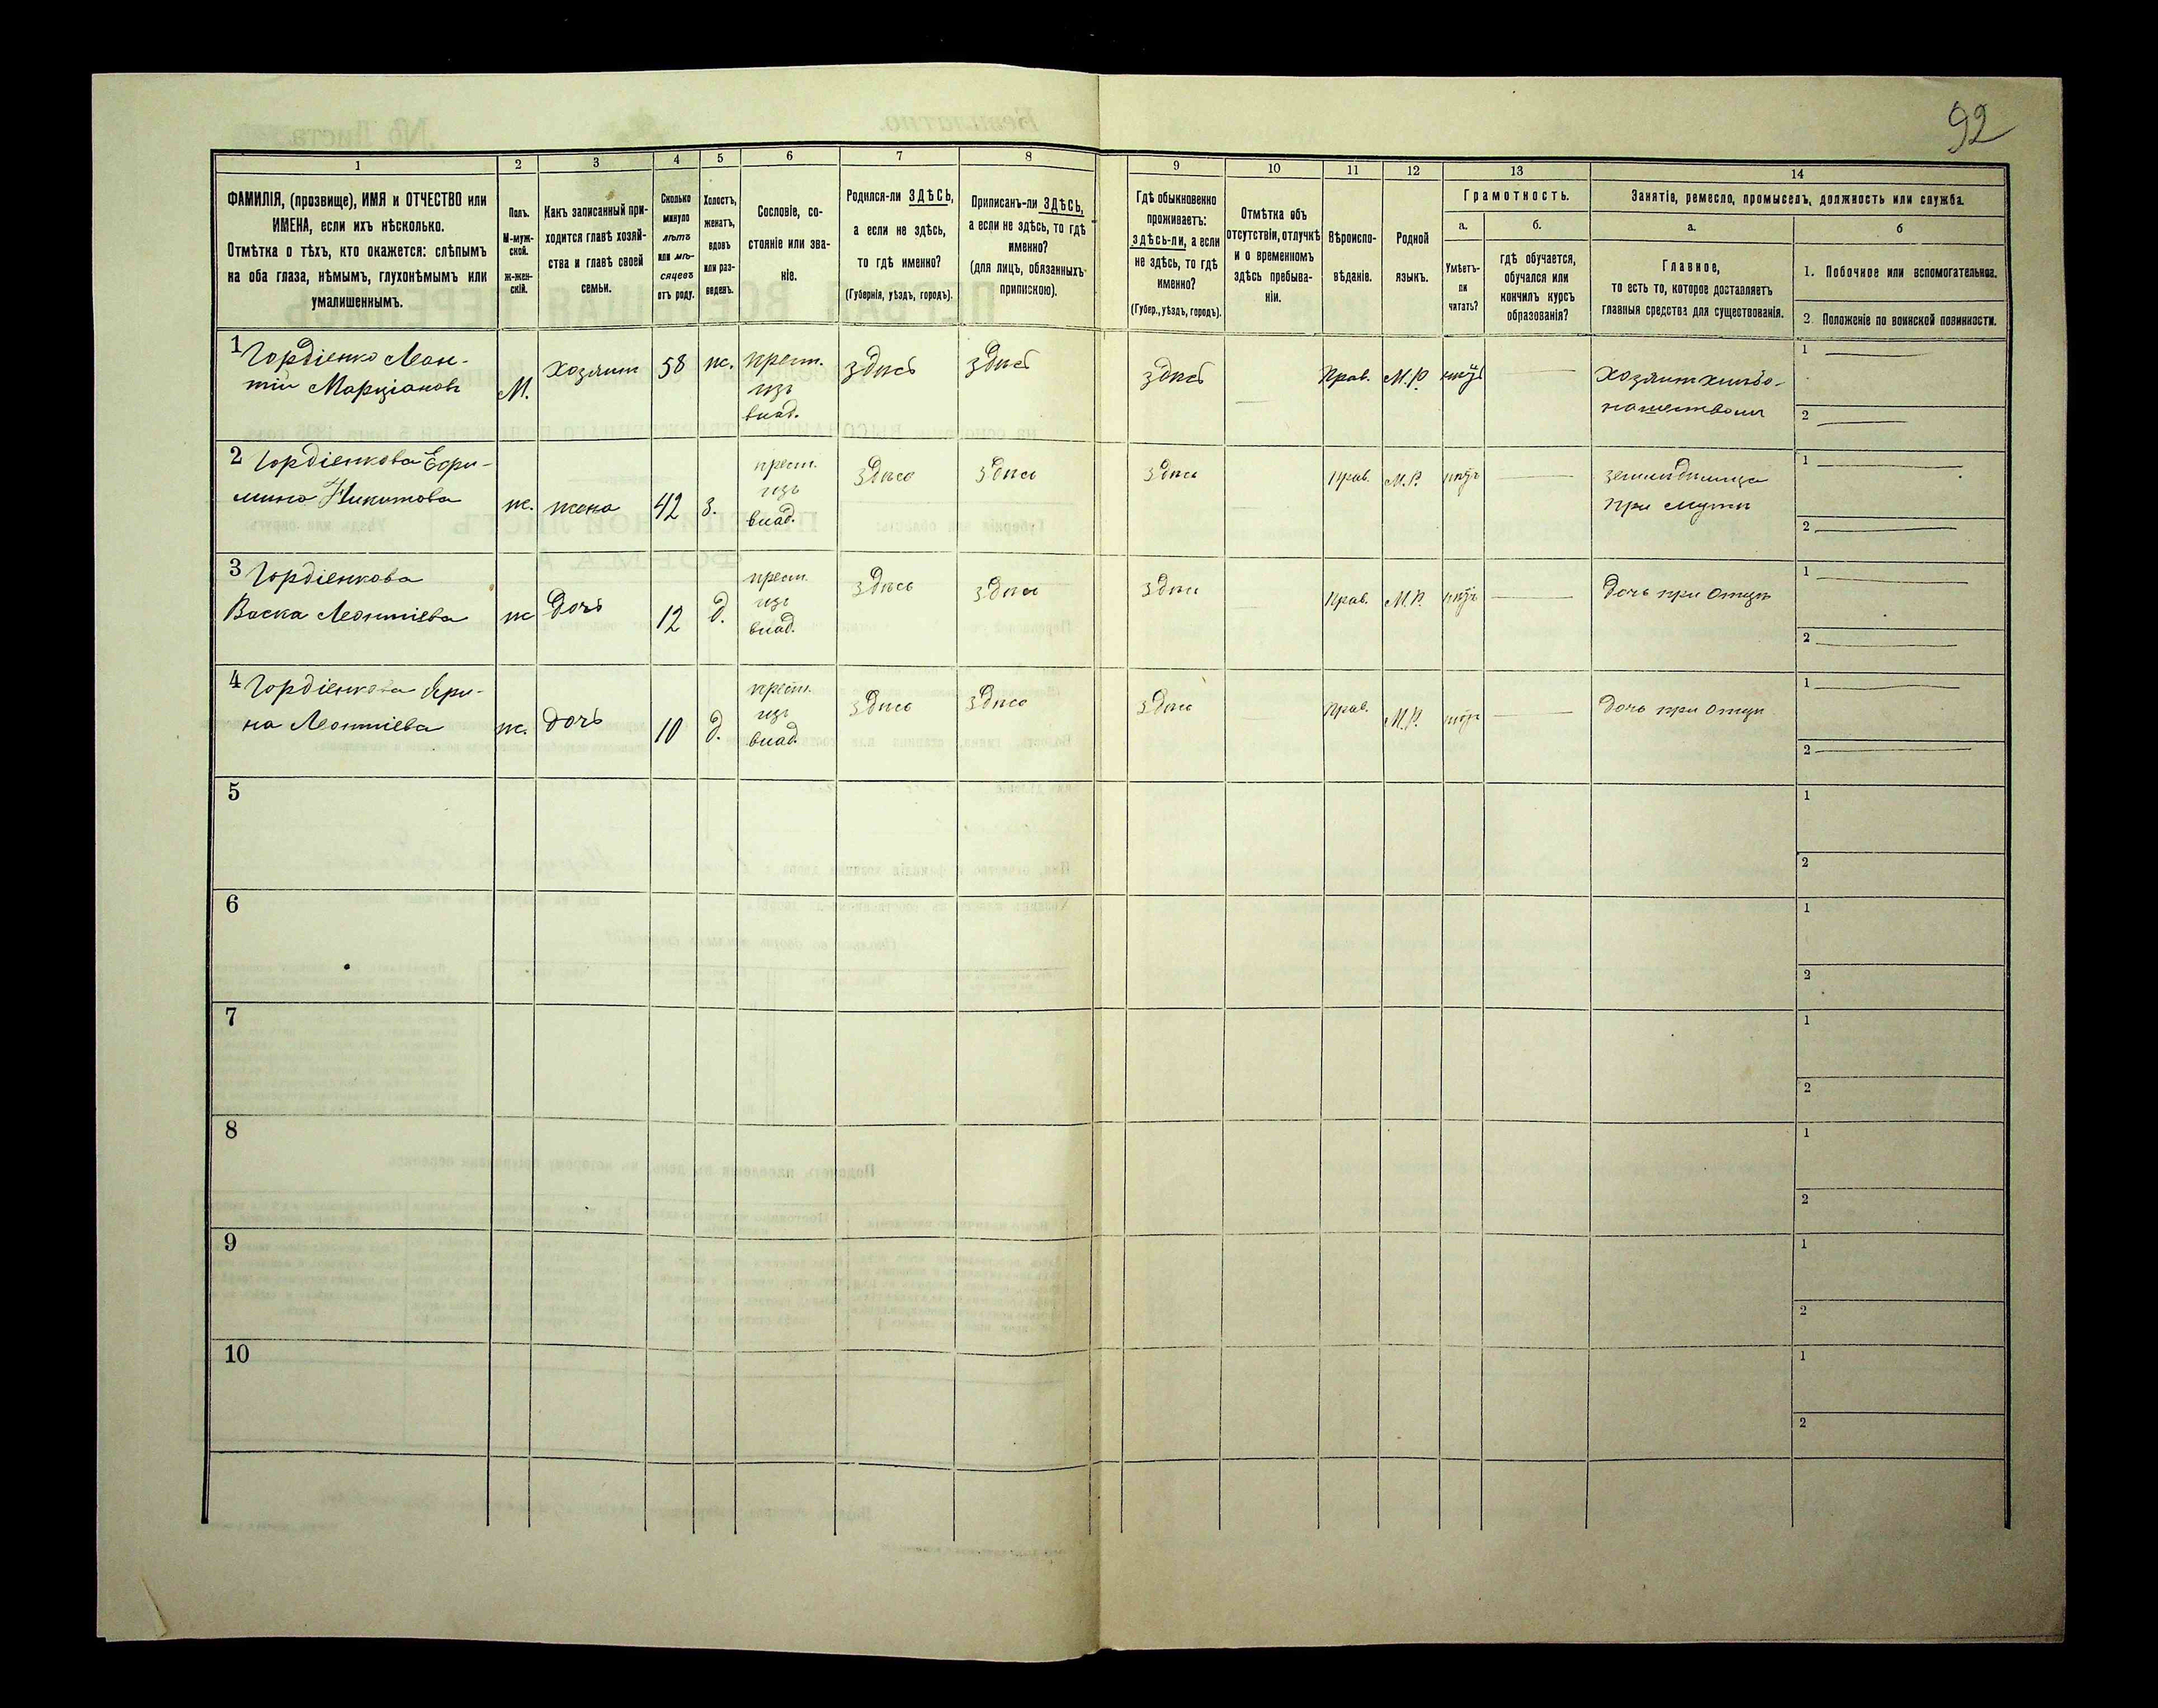 92
1 2 3 4 5 6 7 8 9 10 11 12 13 14
ФАМИЛІЯ, (прозвище), ИМЯ и ОТЧЕСТВО или
ИМЕНА, если ихъ нѣсколько.
Отмѣтка о тѣхъ, кто окажется: слѣпымъ
на оба глаза, нѣмымъ, глухонѣмымъ или
умалишеннымъ.
Полъ.
М-муж-
ской.
ж-жен-
скій.
Какъ записанный при-
ходится главѣ хозяй-
ства и главѣ своей
семьи.
Сколько
минуло
лѣтъ
или мѣ-
сяцевъ
отъ роду.
Холостъ,
женатъ,
вдовъ
или раз-
веденъ.
Сословіе, со-
стояніе или зва-
ніе.
Родился-ли ЗДѢСЬ,
а если не здѣсь,
то гдѣ именно?
(Губернія, уѣздъ, городъ).
Приписанъ-ли ЗДѢСЬ,
а если не здѣсь, то гдѣ
именно?
(для лицъ, обязанныхъ
припискою).
Гдѣ обыкновенно
проживаетъ:
здѣсь-ли, а если
не здѣсь, то гдѣ
именно?
(Губер., уѣздъ, городъ).
Отмѣтка объ
отсутствіи, отлучкѣ
и о временномъ
здѣсь пребыва-
ніи.
Вѣроиспо-
вѣданіе.
Родной
языкъ.
Грамотность.
а.
Умѣетъ-
ли
читать?
б.
гдѣ обучается,
обучался или
кончилъ курсъ
образованія?
Занятіе, ремесло, промыселъ, должность или служба.
а.
Главное,
то есть то, которое доставляетъ
главныя средства для существованія.
б
1. Побочное или вспомогательное.
2. Положеніе по воинской повинности.
1 Гордіенко Леон-
тій Марціановъ
М.
Хозяинъ
58
ж.
крест.
изъ
влад.
здѣсь
здѣсь
здѣсь
Прав.
М.Р.
нѣтъ
Хозяинъ хлѣбо-
пашествомъ
1
2
2 Гордіенкова
Никитова
ж.
жена
42
з.
крест.
изъ
влад.
здѣсь
здѣсь
здѣсь
Прав.
М.Р.
нѣтъ
при мужѣ
1
2
3 Гордіенкова
Васка Леонтіева
ж
дочь
12
д.
крест.
изъ
влад.
здѣсь
здѣсь
здѣсь
Прав.
М.Р.
нѣтъ
дочь при отцѣ
1
2
4 Гордіенкова Яри-
на Леонтіева
ж.
дочь
10
д.
крест.
изъ
влад.
здѣсь
здѣсь
здѣсь
Прав.
М.Р.
нѣтъ
дочь при отцѣ
1
2
5
1
2
6
1
2
7
1
2
8
1
2
9
1
2
10
1
2